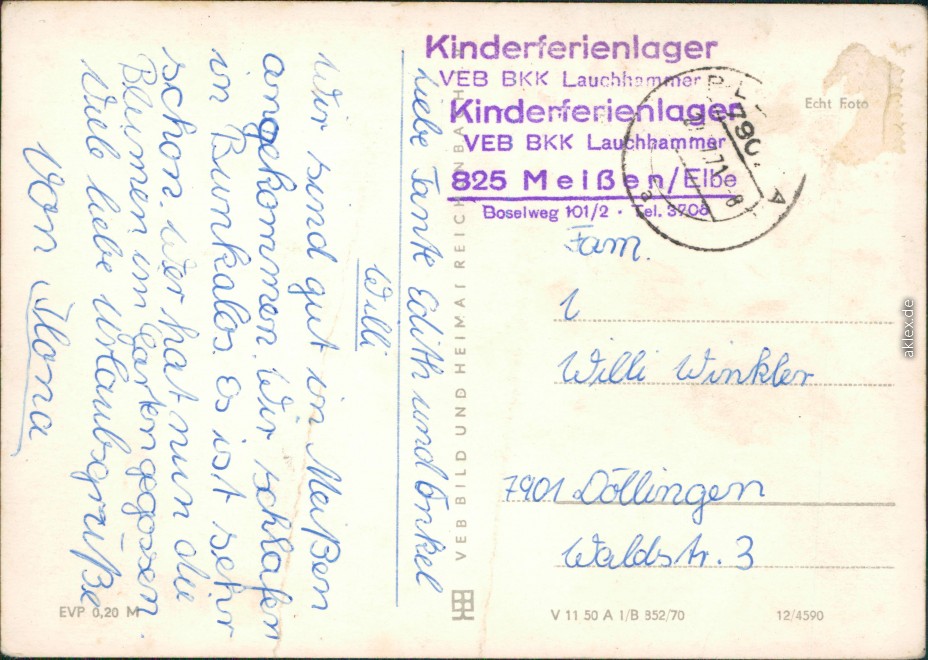 Liebe Tante Edith und Onkel
Willi
Wir sind gut in Meißen
angekommen. Wir schlafen
in Bunkalos. Es ist sehr
schön. Wer hat nun die
Blumen im Garten gegossen.
Viele liebe Urlaubsgrüße
Von Ilona
Kinderferienlager
VEB BKK Lauchhammer
Kinderferienlager
VEB BKK Lauchhammer
825 Meißen/Elbe
Boselweg 101/2 · Tel. 3708
Echt Foto
Fam.
Willi Winkler
7901 Döllingen
Waldstr. 3
VEB BILD UND HEIMAT REICHENBACH
EVP 0,20 M
V 11 50 A 1/B 852/70
12/4590
aklex.de